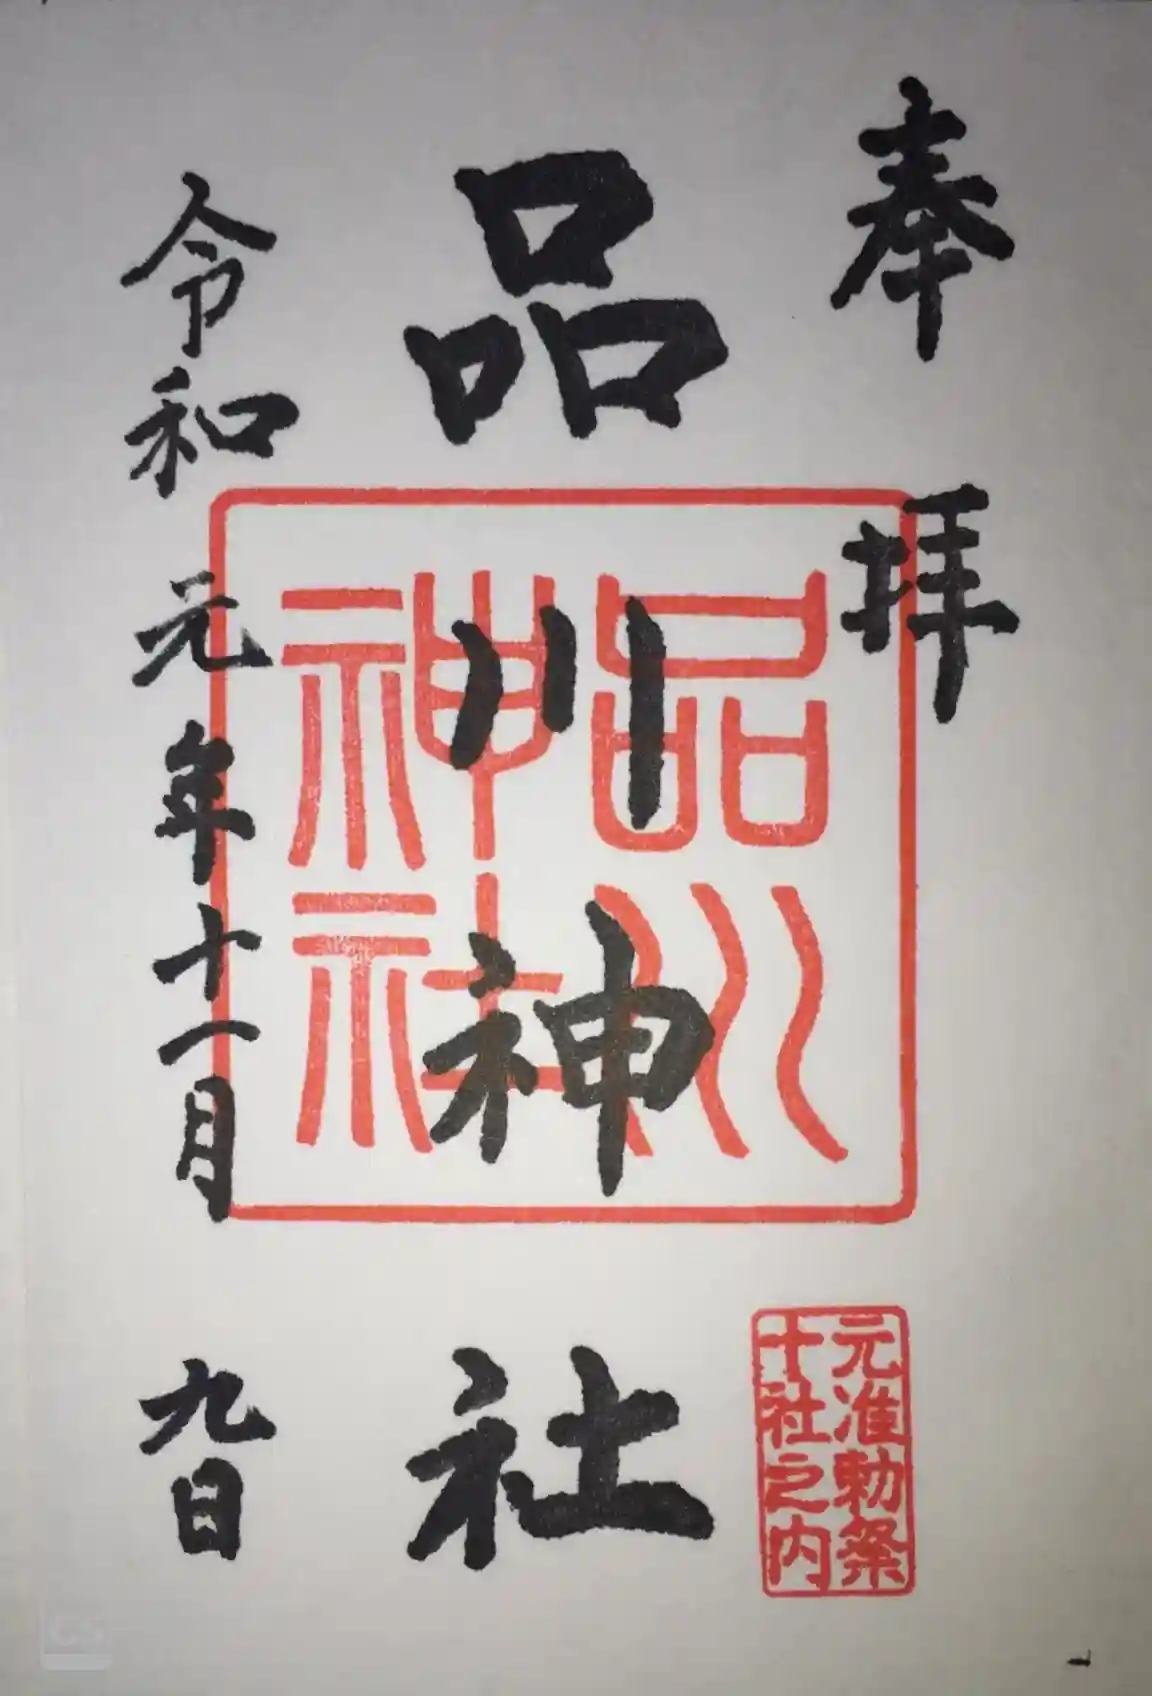 奉拝
品川神社
品川
神社
元准勅祭
十社之内
令和元年十一月九日
CS